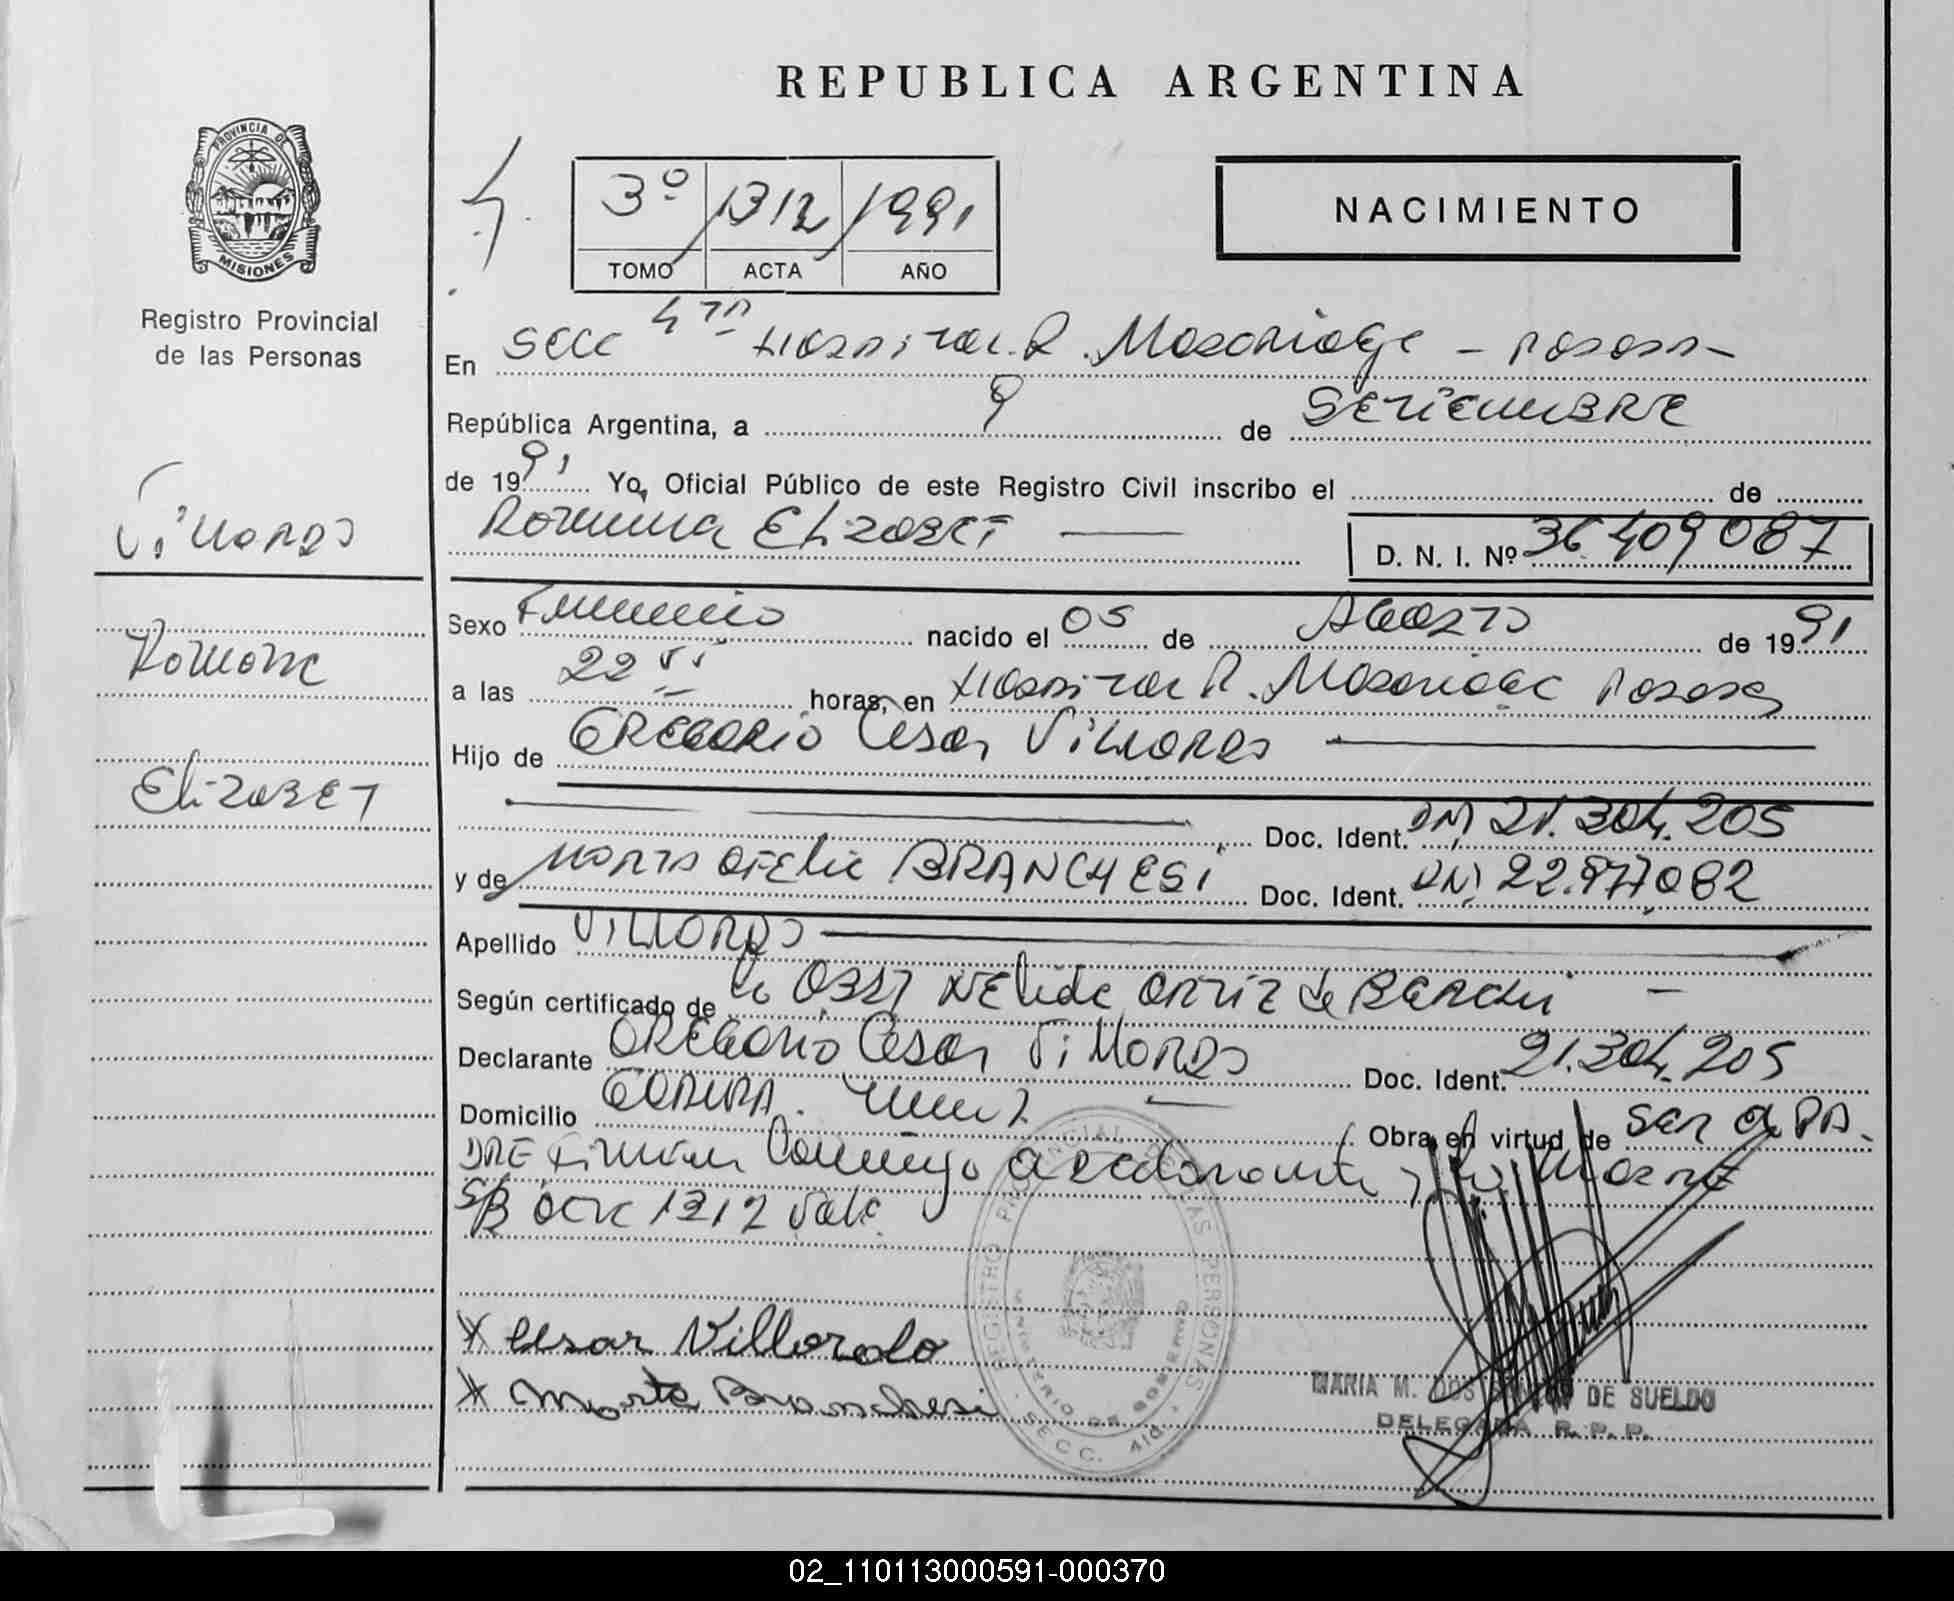 REPUBLICA ARGENTINA
PROVINCIA DE MISIONES
Registro Provincial
de las Personas
3º 1312 1991
TOMO ACTA AÑO
NACIMIENTO
En Secc 4ta Hospital R. Madariaga - Posadas -
República Argentina, a 9 de SETIEMBRE
de 1991 Yo, Oficial Público de este Registro Civil inscribo el de
Romina ELIZABET D. N. I. Nº 36.409087
Villordo
Romina
Elizabet
Sexo Femenino nacido el 05 de Agosto de 1991
a las 22 horas, en Hospital R. Madariaga Posadas
Hijo de GREGORIO Cesar Villordo
Doc. Ident. DNI 21.304.205
y de Marta Ofelia BRANCHESI Doc. Ident. DNI 22.977.082
Apellido Villordo
Según certificado de la Obst Nelida Ortiz de
Declarante GREGORIO Cesar Villordo Doc. Ident. 21.304.205
Domicilio Obra en virtud de ser el PA-
DRE Firman Conmigo el declarante y la Madre
S/B acta 1312 Vale
REGISTRO PROVINCIAL DE LAS PERSONAS
MINISTERIO DE GOBIERNO
SECC. 4ta.
x Cesar Villordo
x Marta Branchesi
MARIA M. DOS SANTOS DE SUELDO
DELEGADA R. P. P.
02_110113000591-000370